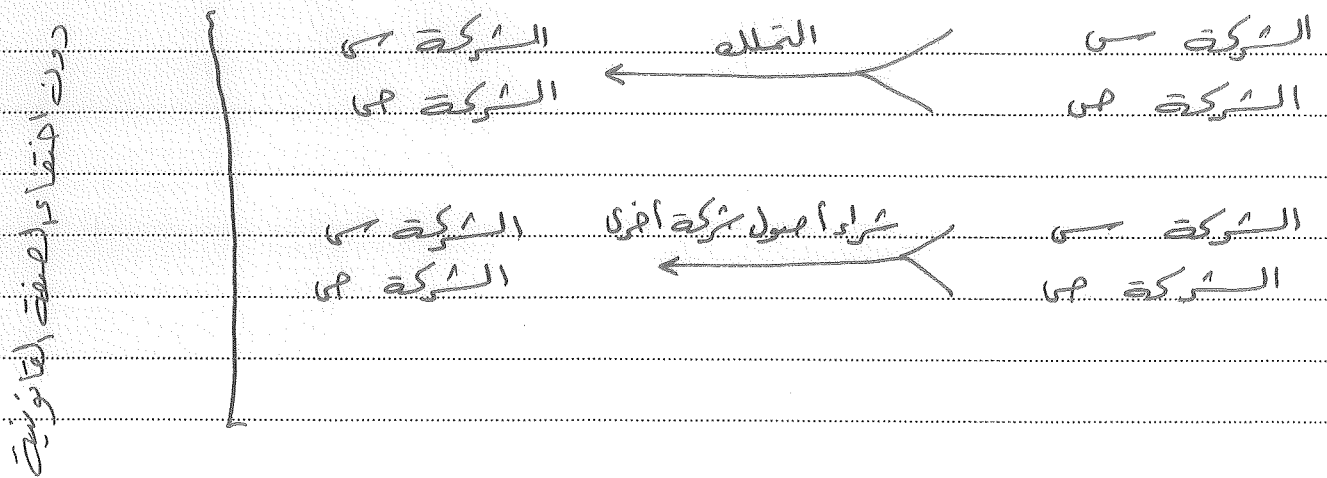 الشركة س التملك الشركة س
الشركة ص الشركة ص
الشركة س شراء أصول شركة أخرى الشركة س
الشركة ص الشركة ص
دون اختفاء الصفة القانونية